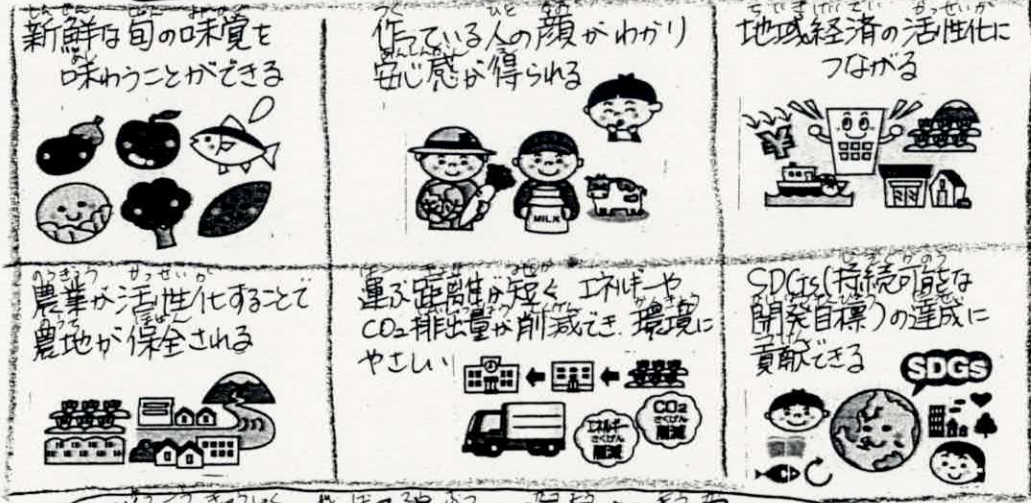 新鮮な旬の味覚を
味わうことができる
作っている人の顔がわかり
安心感が得られる
MILK
地域経済の活性化に
つながる
¥
農業が活性化することで
農地が保全される
運ぶ距離が短く エネルギーや
CO2排出量が削減でき、環境に
やさしい
エネルギー
さくげん
削減
CO2
さくげん
削減
SDGs(持続可能な
開発目標)の達成に
貢献できる
SDGs